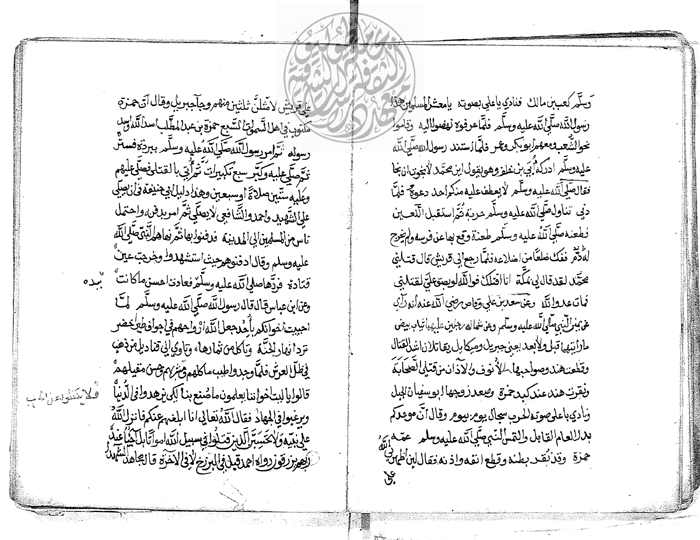 وسلم كعب بن مالك فنادي باعلي بصوته يا معشر المسلمين هذا
رسول الله صلي الله عليه وسلم فلما عرفوه نهضوا اليه وقاموا
نحو الشعب ومعهم ابو بكر وعمر فلما استند رسول الله صلي الله
عليه وسلم ادركه ابي بن خلف وهو يقول اين محمد لا نجوت ان نجا
فقال صلي الله عليه وسلم لا يعطف عليه منكم احد دعوه فلما
دني تناول صلي الله عليه وسلم حربة ثم استقبل اللعين
فطعنه صلي الله عليه وسلم طعنة وقع بها عن فرسه ولم يخرج
له دم فكك ضلعا من اضلاعه فلما رجع الي قريش قال قتلني
محمد لقد قال لي بمكة انا اقتلك فوالله لو بصق علي لقتلني
فمات عدو الله وعن سعد بن ابي وقاص رضي الله عنه انه راي
عن يمين النبي صلي الله عليه وسلم وعن شماله رجلين عليهما ثياب بيض
ما رايتهما قبل ولا بعد يعني جبريل وميكايل يقاتلان اشد القتال
وقطعت هند وصواحبها الانوف والاذان من قتلي الصحابة
ونقرت هند عن كبد حمزة وصعد زوجها ابو سفيان الجبل
ونادي باعلي صوته الحرب سجال يوم بيوم وقال ان موعدكم
بدر العام القابل والتمس النبي صلي الله عليه وسلم عمه
حمزة وقد بقر بطنه وقطع انفه واذنه فقال لئن اظهرني الله
علي
علي قريش لامثلن ثلثين منهم وجا جبريل وقال ان حمزة
مكتوب في اهل السموات السبع حمزة بن عبد المطلب اسد الله واسد
رسوله ثم امر رسول الله صلي الله عليه وسلم ببردة فستر
ثم صلي عليه وكبر سبع تكبيرات ثم اتي بالقتلي فصلي عليهم
وعليه ستين صلاة او سبعين وهذا دليل ابي حنيفة فانه صلي
علي الشهيد واحمد والشافعي لا يصلي ثم امر بدفن واحتمل
ناس من المسلمين الي المدينة فدفنوا بها ثم نهاهم النبي صلي الله
عليه وسلم وقال ادفنوهم حيث استشهدوا وخرجت عين
قتادة فردها صلي الله عليه وسلم فعادت احسن ما كانت
بيده
وعن ابن عباس قال قال رسول الله صلي الله عليه وسلم لما
اصيبت اخوانكم باحد جعل الله ارواحهم في اجواف طير خضر
ترد انهار الجنة وتاكل من ثمارها وتاوي الي قناديل من ذهب
في ظل العرش فلما وجدوا طيب ماكلهم ومشربهم وحسن مقيلهم
قالوا يا ليت اخواننا يعلمون ما صنع بنا لكي يزهدوا في الدنيا
ويرغبوا في الجهاد فقال الله تعالي انا ابلغهم عنكم فانزل الله
علي نبيه ولا تحسبن الذين قتلوا في سبيل الله امواتا بل احياء عند
ربهم يرزقون رواه احمد قيل في البرزخ لا في الاخرة قال مجاهد